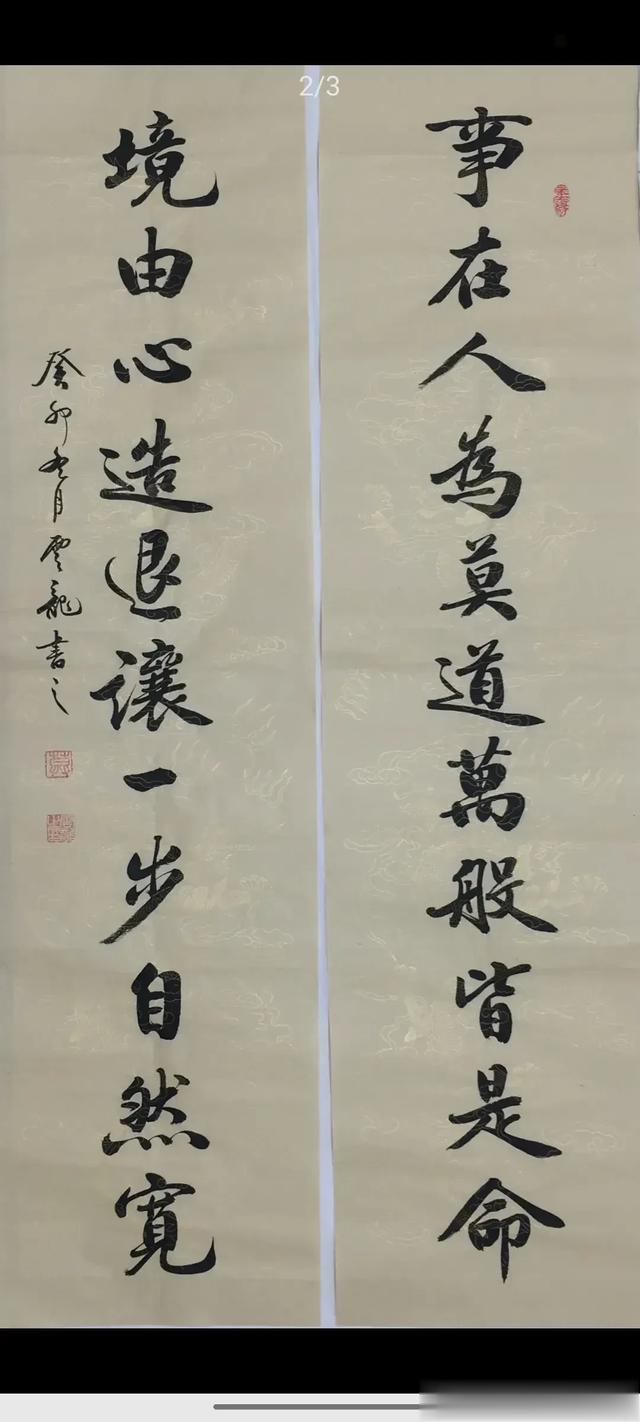 2/3
事在人為莫道萬般皆是命
境由心造退讓一步自然寬
癸卯冬月雲龍書之